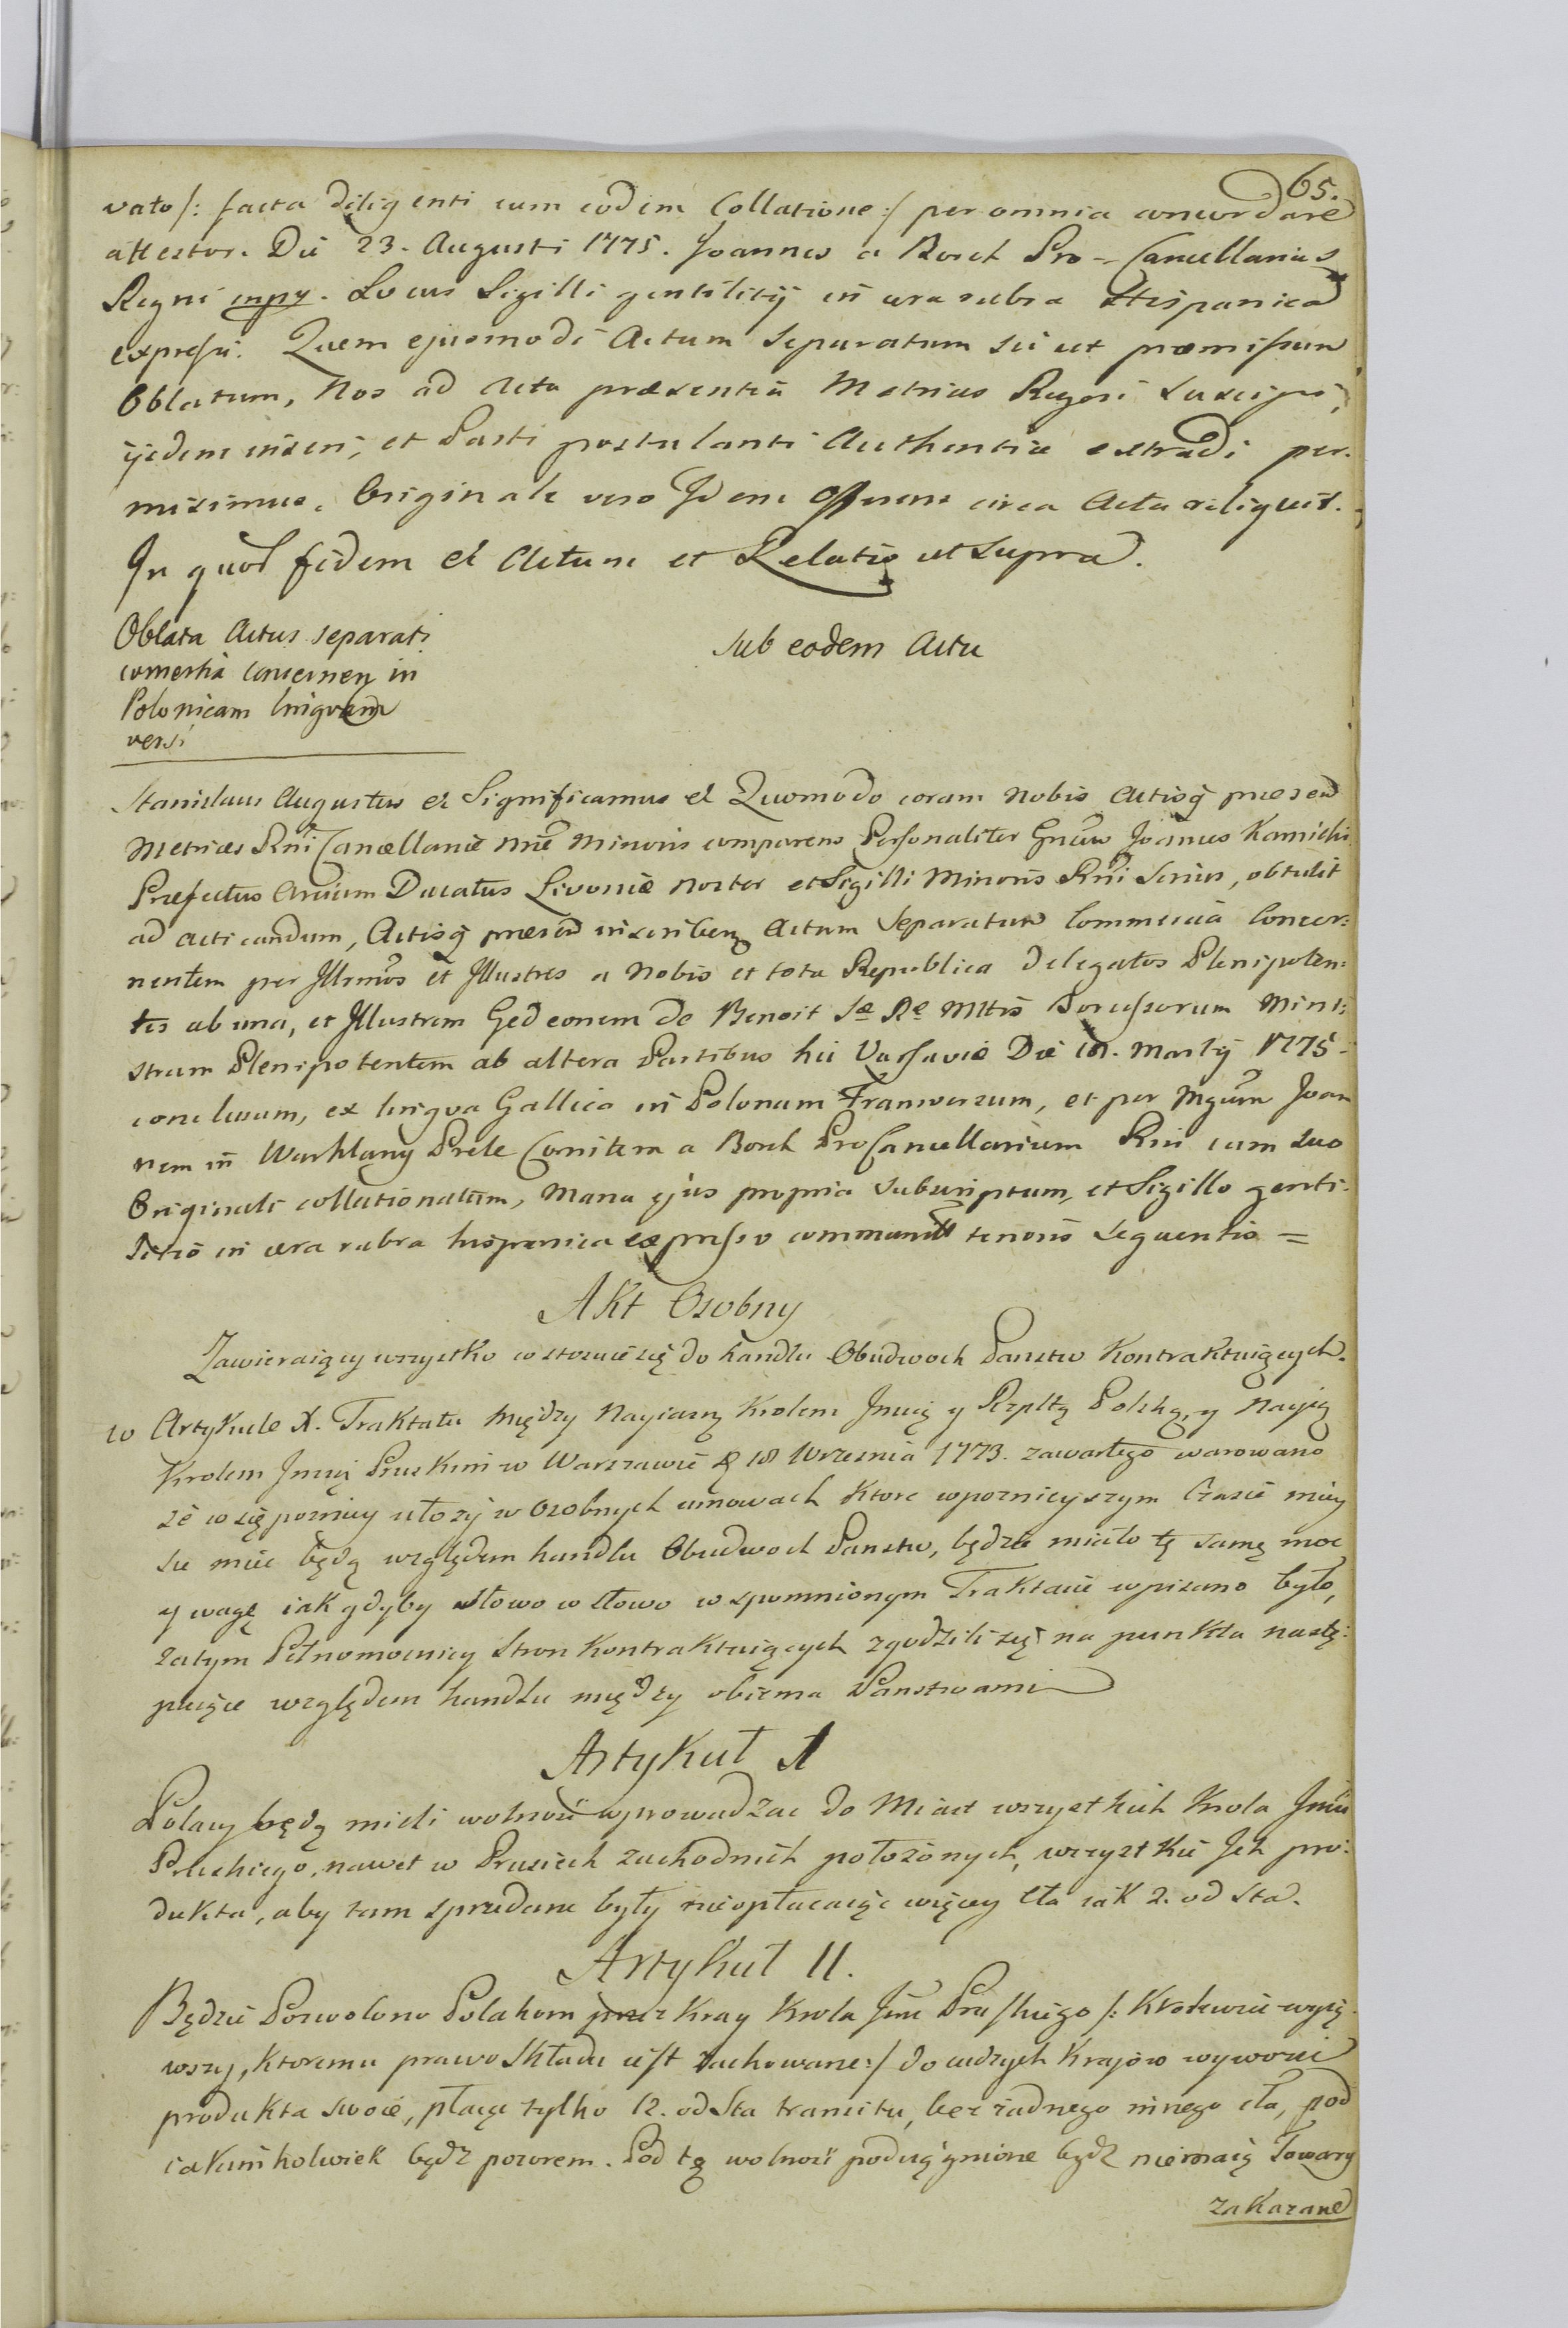 65.
vato /: facta diligenti cum eodem Collatione :/ per omnia concordare
attestor. Die 23. Augusti 1775. Joannes a Borch Pro-Cancellarius
Regni mpp. Locus Sigilli gentilitij in cera rubra Hispanica
expressi. Quem ejusmodi Actum separatum sicut præmissum
Oblatum, Nos ad Acta præsentia Metrices Regni suscipi,
ijsdem inseri, et Parti postulanti Authentice extradi per-
misimus. Originale vero Idem Offerens circa Acta reliquit.
In quor fidem et Actum et Relatio ut supra.
Oblata Actus separati
comertia concernen in
Polonicam linguam
versi
sub eodem Actu
Stanislaus Augustus et Significamus et Quomodo coram Nobis Actisq præsen
Metrices Rni Cancellariæ nræ Minoris comparens Personaliter Gnrus Joannes Kamicki
Præfectus Arcium Ducatus Livoniæ Noster et Sigilli Minoris Rni Scrius, obtulit
ad acticandum, Actisq præsen inscriben Actum Separatum Commercia Concer-
nentem per Illrmos et Illustres a Nobis et tota Republica Delegatos Plenipoten-
tes ab una, et Illustrem Gedeonem de Benoit Sæ Ræ Mttis Borussorum Mini-
strum Plenipotentem ab altera Partibus hic Varsaviæ Die 18. Martij 1775-
conclusum, ex lingva Gallica in Polonam Transversum, et per Mgcum Joan
nem in Warklany Prele Comitem a Borch ProCancellarium Rni cum suo
Originali collationatum, Manu ejus propria subscriptum, et Sigillo genti-
litio in cera rubra hispanica expresso communit tenoris sequentis =
Akt Osobny
Zawieraiący wszystko co stosuie się do handlu Obudwoch Panstw Kontraktuiących.
w Artykule X. Traktatu między Nayiasn Krolem Jmcią y Rzpltą Polską, y Nayią
Krolem Jmcią Pruskim w Warszawie d 18 Wrzesnia 1773. zawartego warowano
że co się pozniey ułoży w Osobnych umowach Ktore w poznieyszym Czasie miey
sce miec będą względem handlu Obudwoch Panstw, będzie miało tę samę moc
y wagę iak gdyby słowo w słowo w spomnionym Traktacie wpisano było,
zatym Pełnomocnicy Stron Kontraktuiących zgodzili się na punkta nastę-
puiące względem handlu między obiema Panstwami
Artykuł I
Polacy będą mieli wolność wprowadzac do Miast wszystkich Krola Jmci
Pruskiego, nawet w Prusiech zachodnich położonych, wszystkie Jch pro-
dukta, aby tam sprzedane były nieopłacaiąc więcey Cła iak 2. od Sta.
Artykuł II.
Będzie Pozwolono Polakom przez Kray Krola Jmci Pruskiego /: Krolewiec wyią-
wszy, Ktoremu prawo Składu iest zachowane :/ do cudzych Krajow wywozic
produkta swoie, płacąc tylko 12. od Sta transitu, bez żadnego innego cła, pod
iakimkolwiek bądz pozorem. Pod tę wolność podciągnione bydz niemaią Towary
zakazane